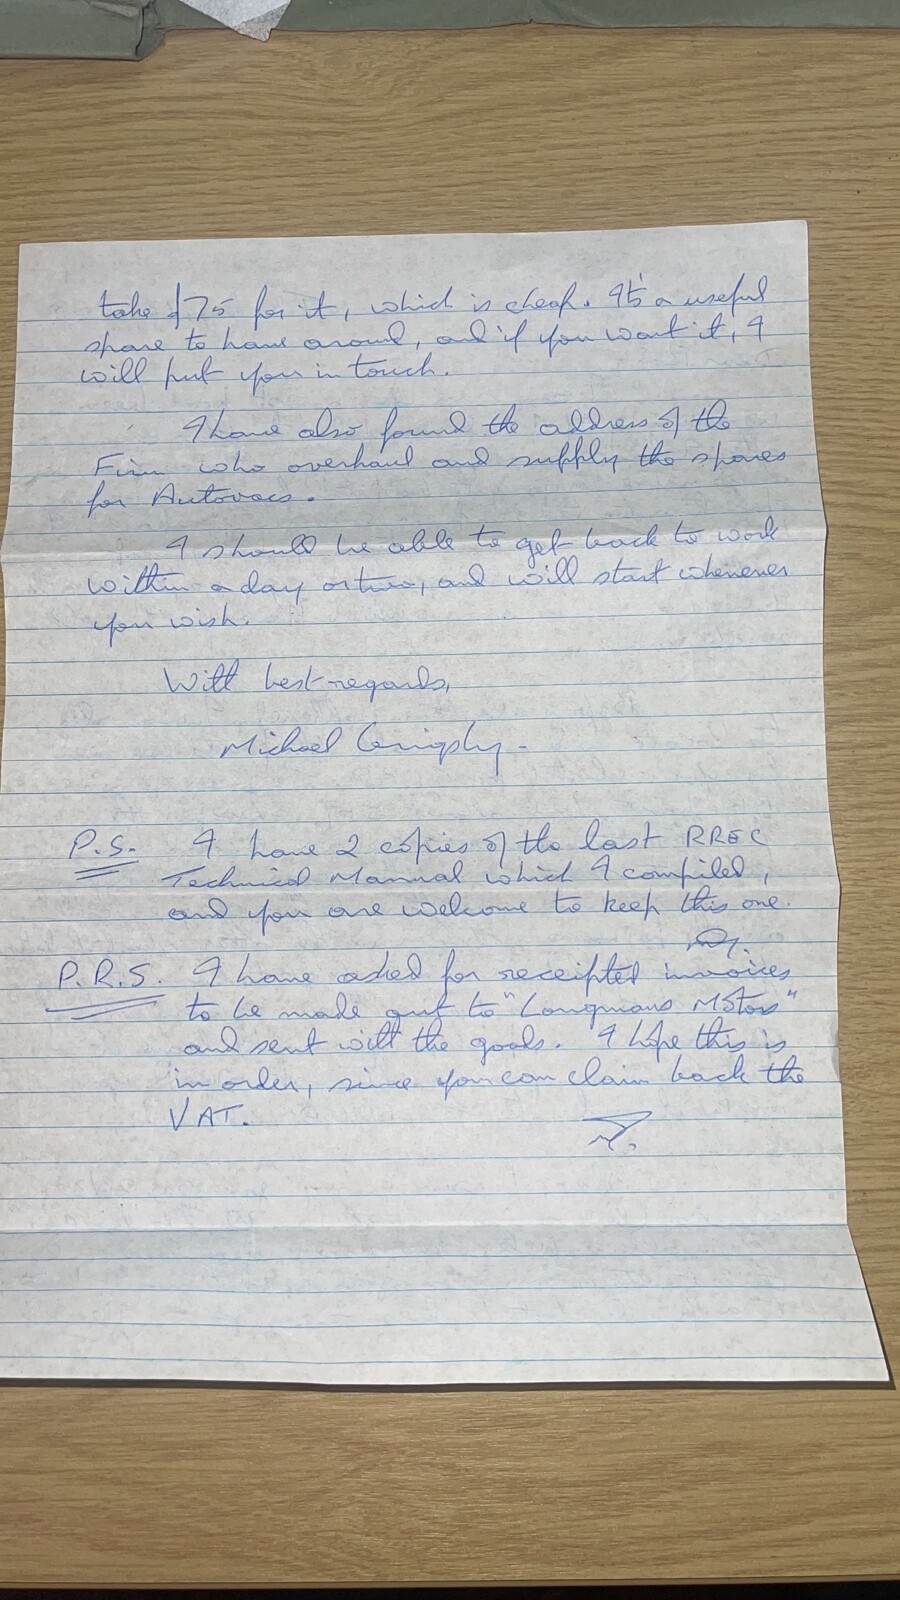 take £75 for it, which is cheap. It's a useful
spare to have around, and if you want it, I
will put you in touch.
I have also found the address of the
Firm who overhaul and supply the spares
for Autovacs.
I should be able to get back to work
within a day or two, and will start whenever
you wish.
With best regards,
Michael
P.S. I have 2 copies of the last RREC
Technical Manual which I compiled,
and you are welcome to keep this one.
P.R.S. I have asked for receipted invoices
to be made out to "Longmans Motors"
and sent with the goods. I hope this is
in order, since you can claim back the
VAT.